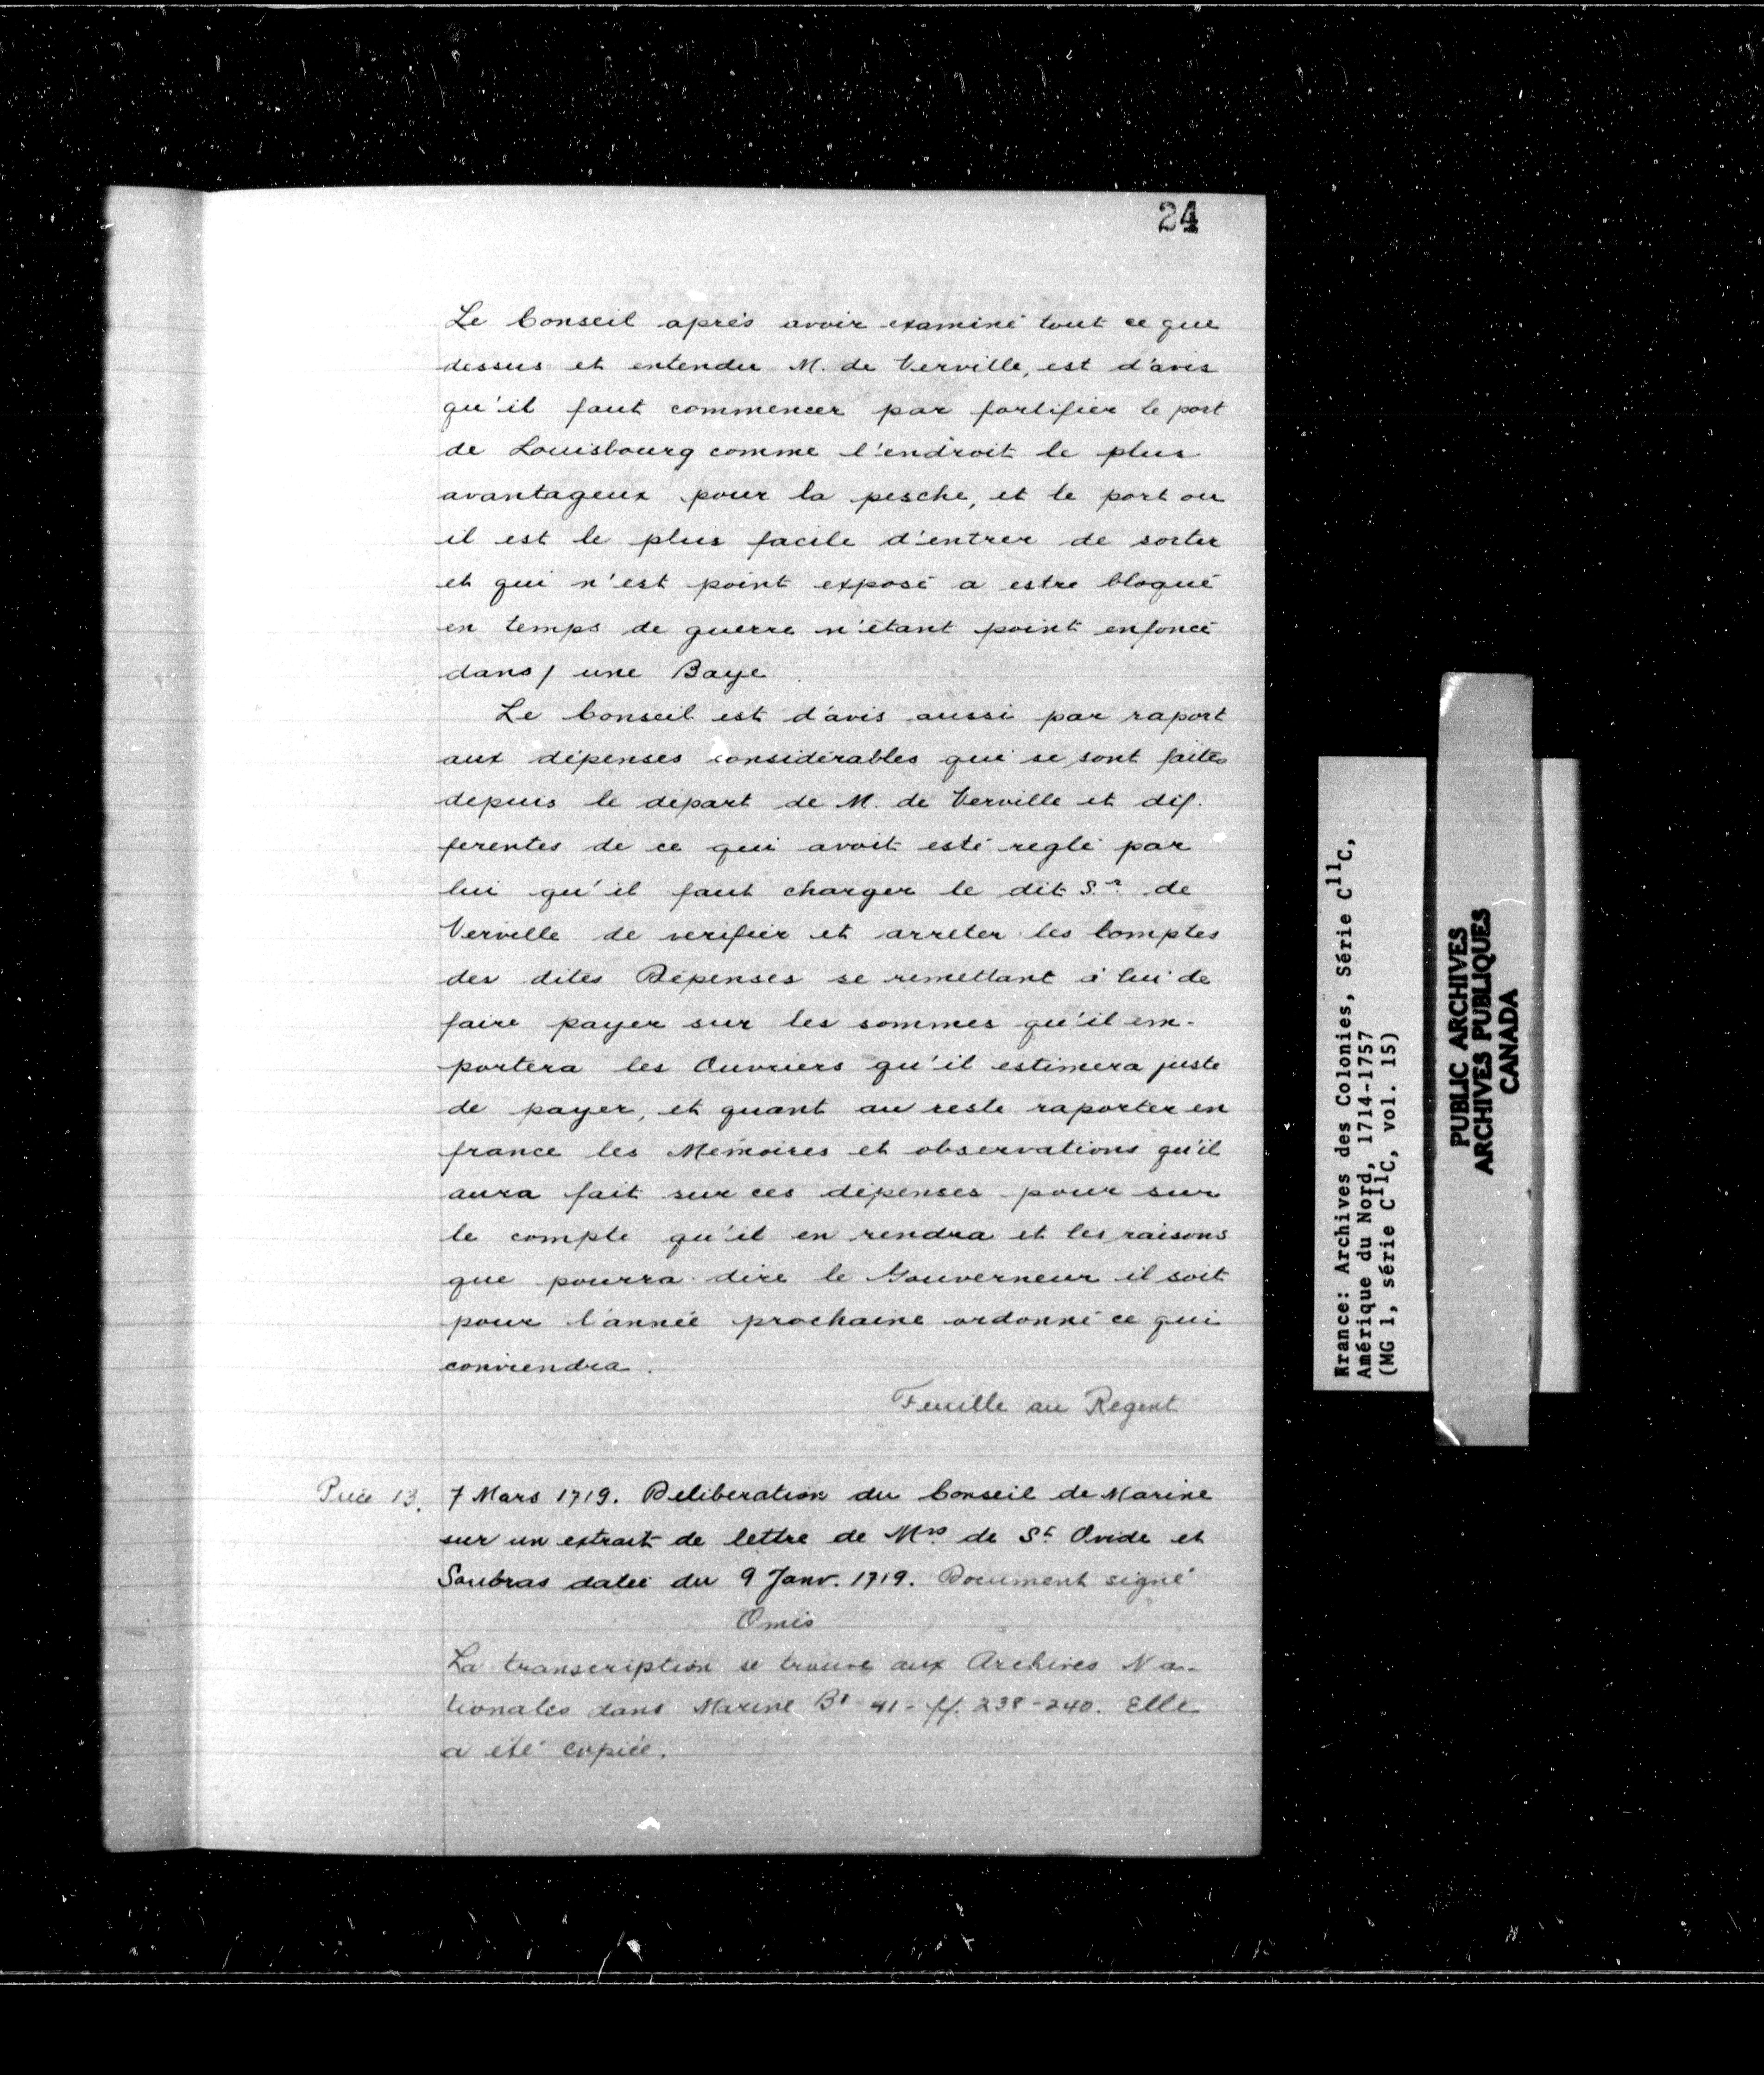 24
Le Conseil aprés avoir examiné tout ce que
dessus et entendu M. de Verville, est d'avis
qu'il faut commencer par fortifier le port
de Louisbourg comme l'endroit le plus
avantageux pour la pesche, et le port ou
il est le plus facile d'entrer de sortir
et qui n'est point exposé a estre bloqué
en temps de guerre n'étant point enfoncé
dans / une Baye.
Le Conseil est d'avis aussi par raport
aux dépenses considérables qui se sont faites
depuis le départ de M. de Verville et dif-
ferentes de ce qui avoit esté reglé par
lui qu'il faut charger le dit Sr. de
Verville de verifier et arreter les Comptes
des dites Dépenses se remettant à lui de
faire payer sur les sommes qu'il em-
portera les Ouvriers qu'il estimera juste
de payer, et quant au reste raporter en
france les Mémoires et observations qu'il
aura fait sur ces dépenses pour sur
le compte qu'il en rendra et les raisons
que pourra dire le Gouverneur il soit
pour l'année prochaine ordonné ce qui
conviendra.
Feuille au Regent
Pièce 13. 7 Mars 1719. Déliberation du Conseil de Marine
sur un extrait de lettre de Mrs. de St. Ovide et
Soubras datée du 9 Janv. 1719. Document signé
Omis
La transcription se trouve aux Archives Na-
tionales dans Marine B1 41 - ff. 238-240. Elle
a été copiée.
Rrance: Archives des Colonies, Série C11C,
Amérique du Nord, 1714-1757
(MG 1, série C11C, vol. 15)
PUBLIC ARCHIVES
ARCHIVES PUBLIQUES
CANADA